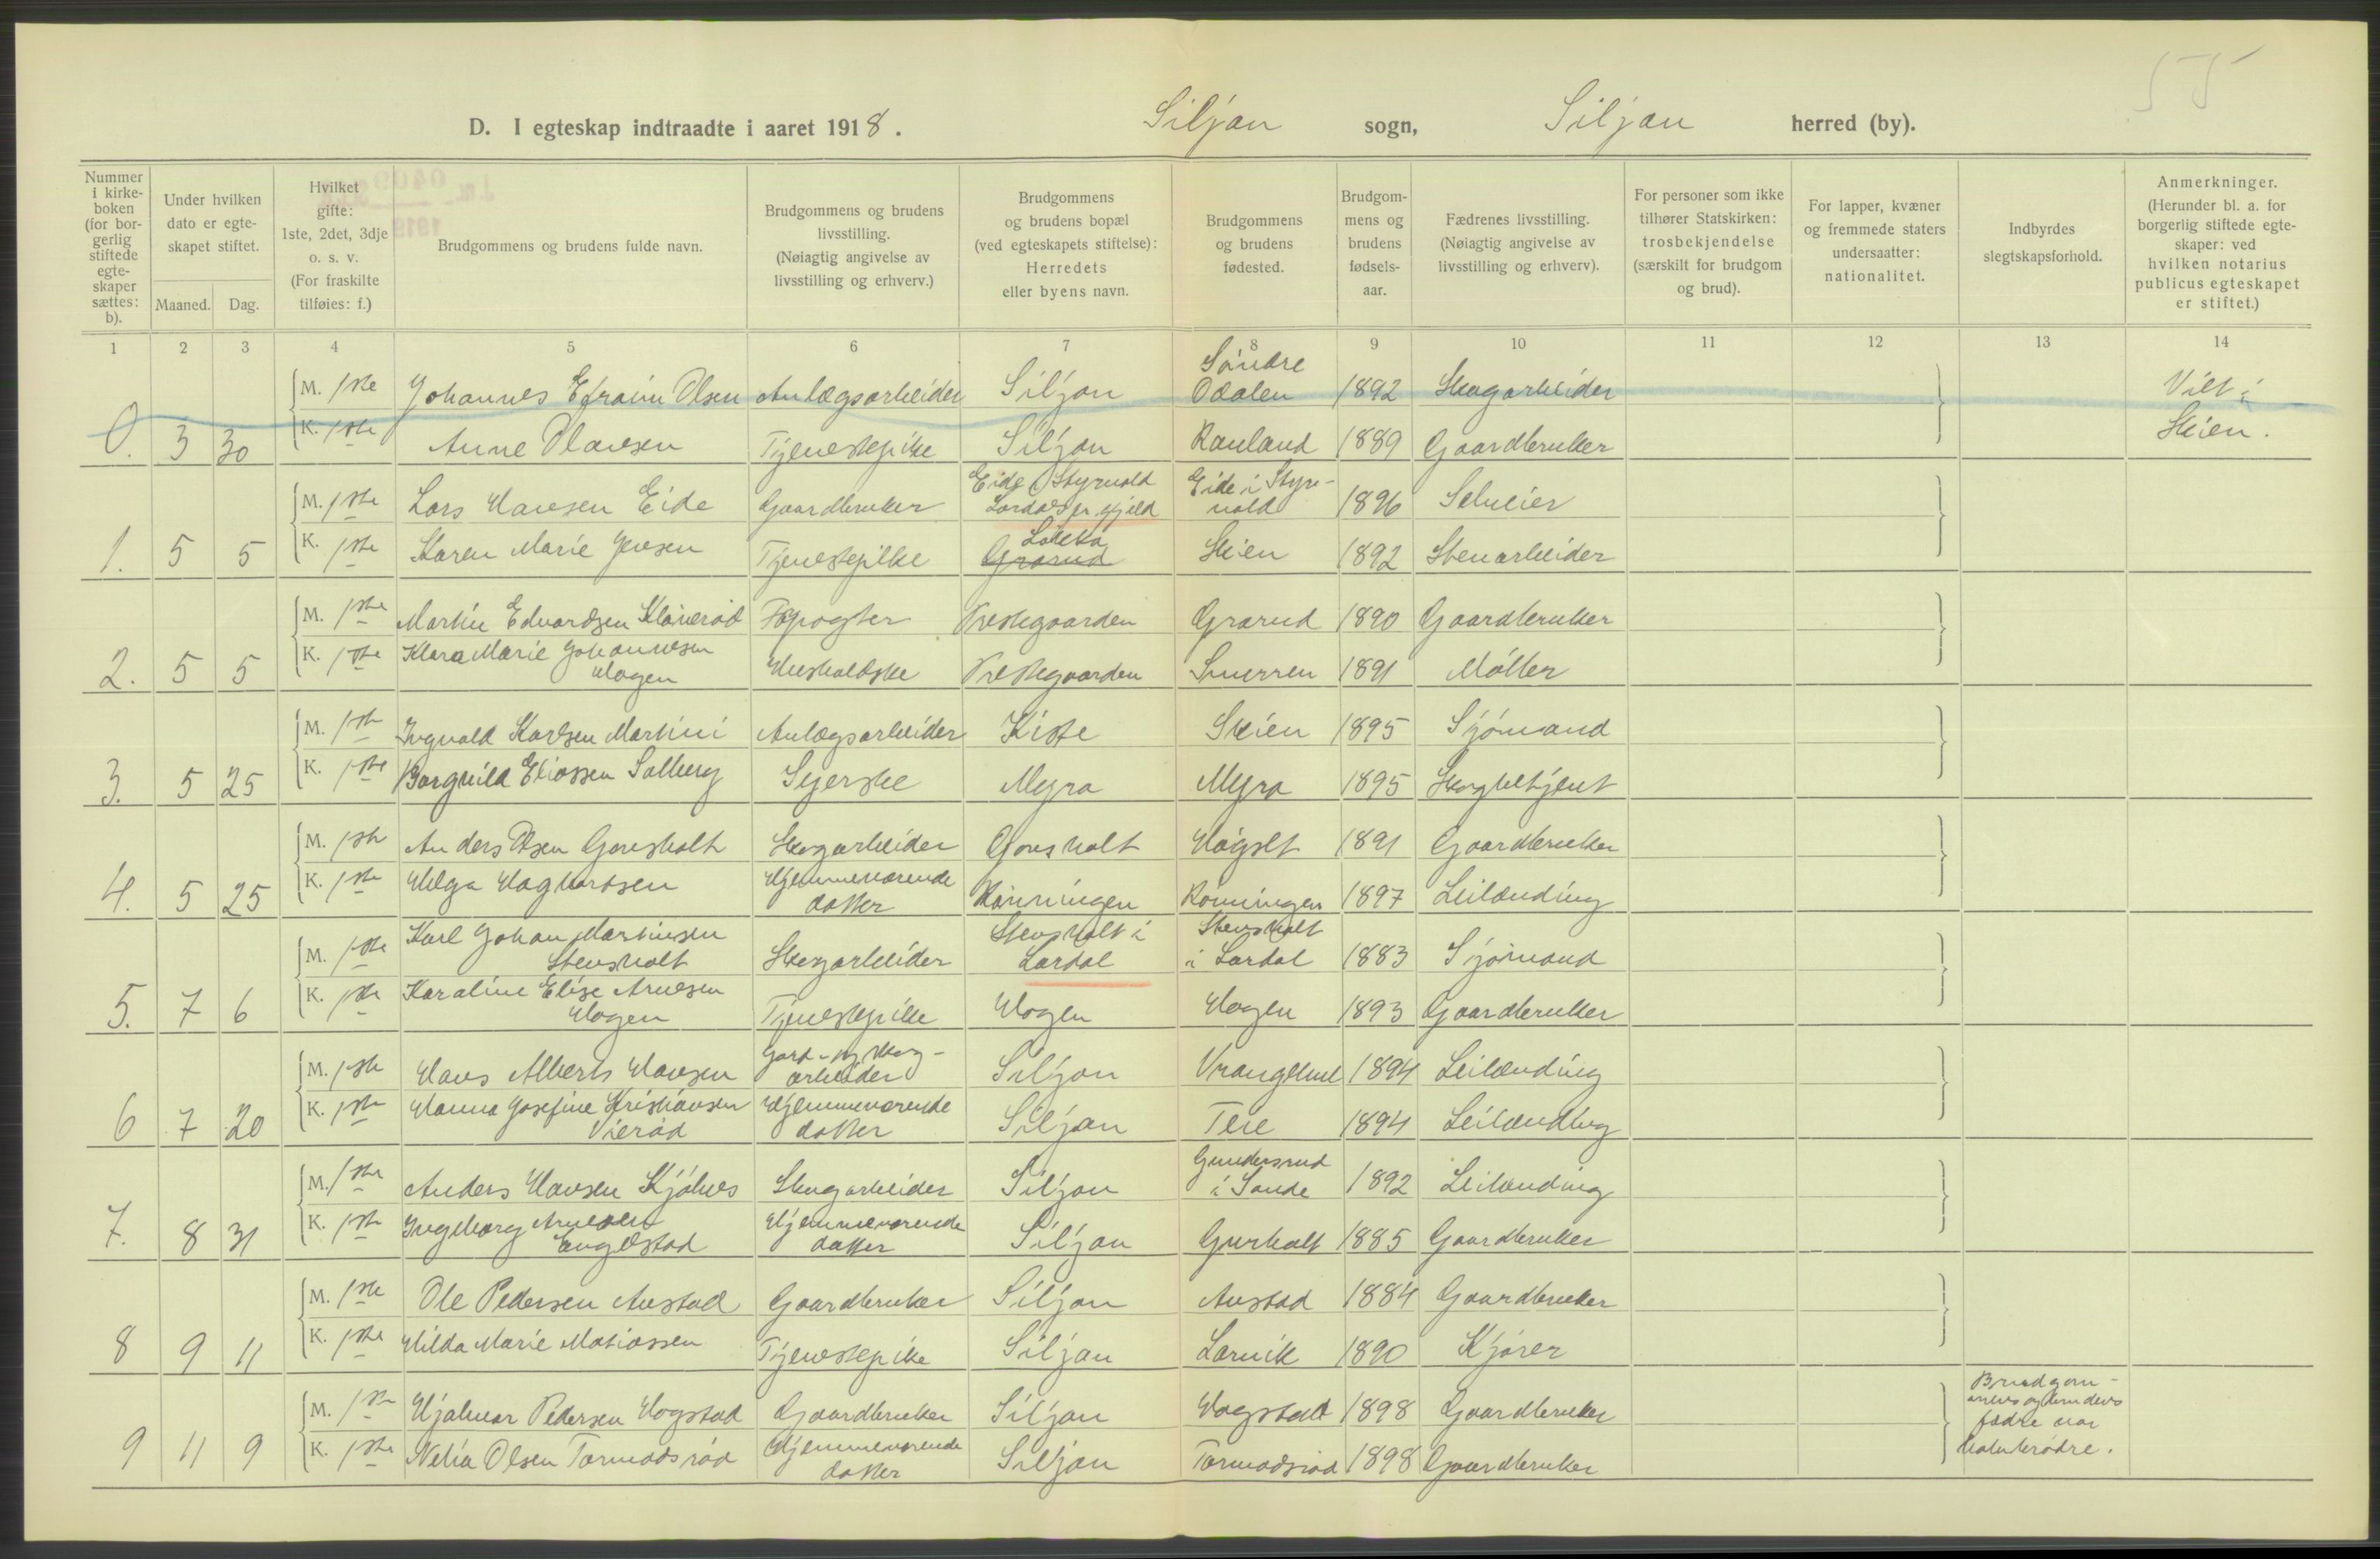 55
D. I egteskap indtraadte i aaret 1918. Siljan sogn, Siljan herred (by).
Nummer i kirke-boken (for bor-gerlig stiftede egte-skaper sættes: b).
Under hvilken dato er egte-skapet stiftet.
Maaned. Dag.
Hvilket gifte: 1ste, 2det, 3dje o. s. v. (For fraskilte tilføies: f.)
Brudgommens og brudens fulde navn.
Brudgommens og brudens livsstilling. (Nøiagtig angivelse av livsstilling og erhverv.)
Brudgommens og brudens bopæl (ved egteskapets stiftelse): Herredets eller byens navn.
Brudgommens og brudens fødested.
Brudgom-mens og brudens fødsels-aar.
Fædrenes livsstilling. (Nøiagtig angivelse av livsstilling og erhverv).
For personer som ikke tilhører Statskirken: trosbekjendelse (særskilt for brudgom og brud).
For lapper, kvæner og fremmede staters undersaatter: nationalitet.
Indbyrdes slegtskapsforhold.
Anmerkninger. (Herunder bl. a. for borgerlig stiftede egte-skaper: ved hvilken notarius publicus egteskapet er stiftet.)
1 2 3 4 5 6 7 8 9 10 11 12 13 14
M. 1ste Johannes Efraim Olsen Anlægsarbeider Siljan Søndre Odalen 1892 Skogarbeider Viet i
0. 3 30 K. 1ste Anne Olavsen Tjenestepike Siljan Rauland 1889 Gaardbruker Skien.
M. 1ste Lars Hansen Eide Gaardbruker Eide i Styrvold Lardal pr.gjeld Eide i Styr-vold 1896 Selveier
1. 5 5 K. 1ste Karen Marie Jensen Tjenestepike Grorud Skien 1892 Stenarbeider
M. 1ste Martin Edvardsen Kløverød Forpagter Prestegaarden Grorud 1890 Gaardbruker
2. 5 5 K. 1ste Klara Marie Johannesen Hogen Husholdske Prestegaarden Snurren 1891 Møller
M. 1ste Ingvald Karlsen Martini Anlægsarbeider Kiste Skien 1895 Sjømand
3. 5 25 K. 1ste Borghild Eliassen Solberg Syerske Myra Myra 1895 Skogbetjent
M. 1ste Anders Olsen Gonsholt Skogarbeider Gonsholt Høgset 1891 Gaardbruker
4. 5 25 K. 1ste Helga Haghartsen Hjemmeværende datter Rønningen Rønningen 1897 Leilænding
M. 1ste Karl Johan Martinsen Stensholt Skogarbeider Stensholt i Lardal Stensholt i Lardal 1883 Sjømand
5. 7 6 K. 1ste Karoline Elise Arnesen Hogen Tjenestepike Hogen Hogen 1893 Gaardbruker
M. 1ste Hans Albert Hansen Gard- og skog-arbeider Siljan Vrangekul 1894 Leilænding
6 7 20 K. 1ste Hanna Josefine Kristiansen Vierød Hjemmeværende datter Siljan Teie 1894 Leilænding
M. 1ste Anders Hansen Kjølnes Skogarbeider Siljan Gundersrud i Sande 1892 Leilænding
7. 8 31 K. 1ste Ingeborg Arnesen Engelstad Hjemmeværende datter Siljan Gurholt 1885 Gaardbruker
M. 1ste Ole Pedersen Austad Gaardbruker Siljan Austad 1884 Gaardbruker
8 9 11 K. 1ste Hilda Marie Matiassen Tjenestepike Siljan Larvik 1890 Kjører
M. 1ste Hjalmar Pedersen Hogstad Gaardbruker Siljan Hogstad 1898 Gaardbruker Brudgom-mens og brudens
9 11 9 K. 1ste Nelia Olsen Tormodsrød Hjemmeværende datter Siljan Tormodsrød 1898 Gaardbruker fædre var halvbrødre.